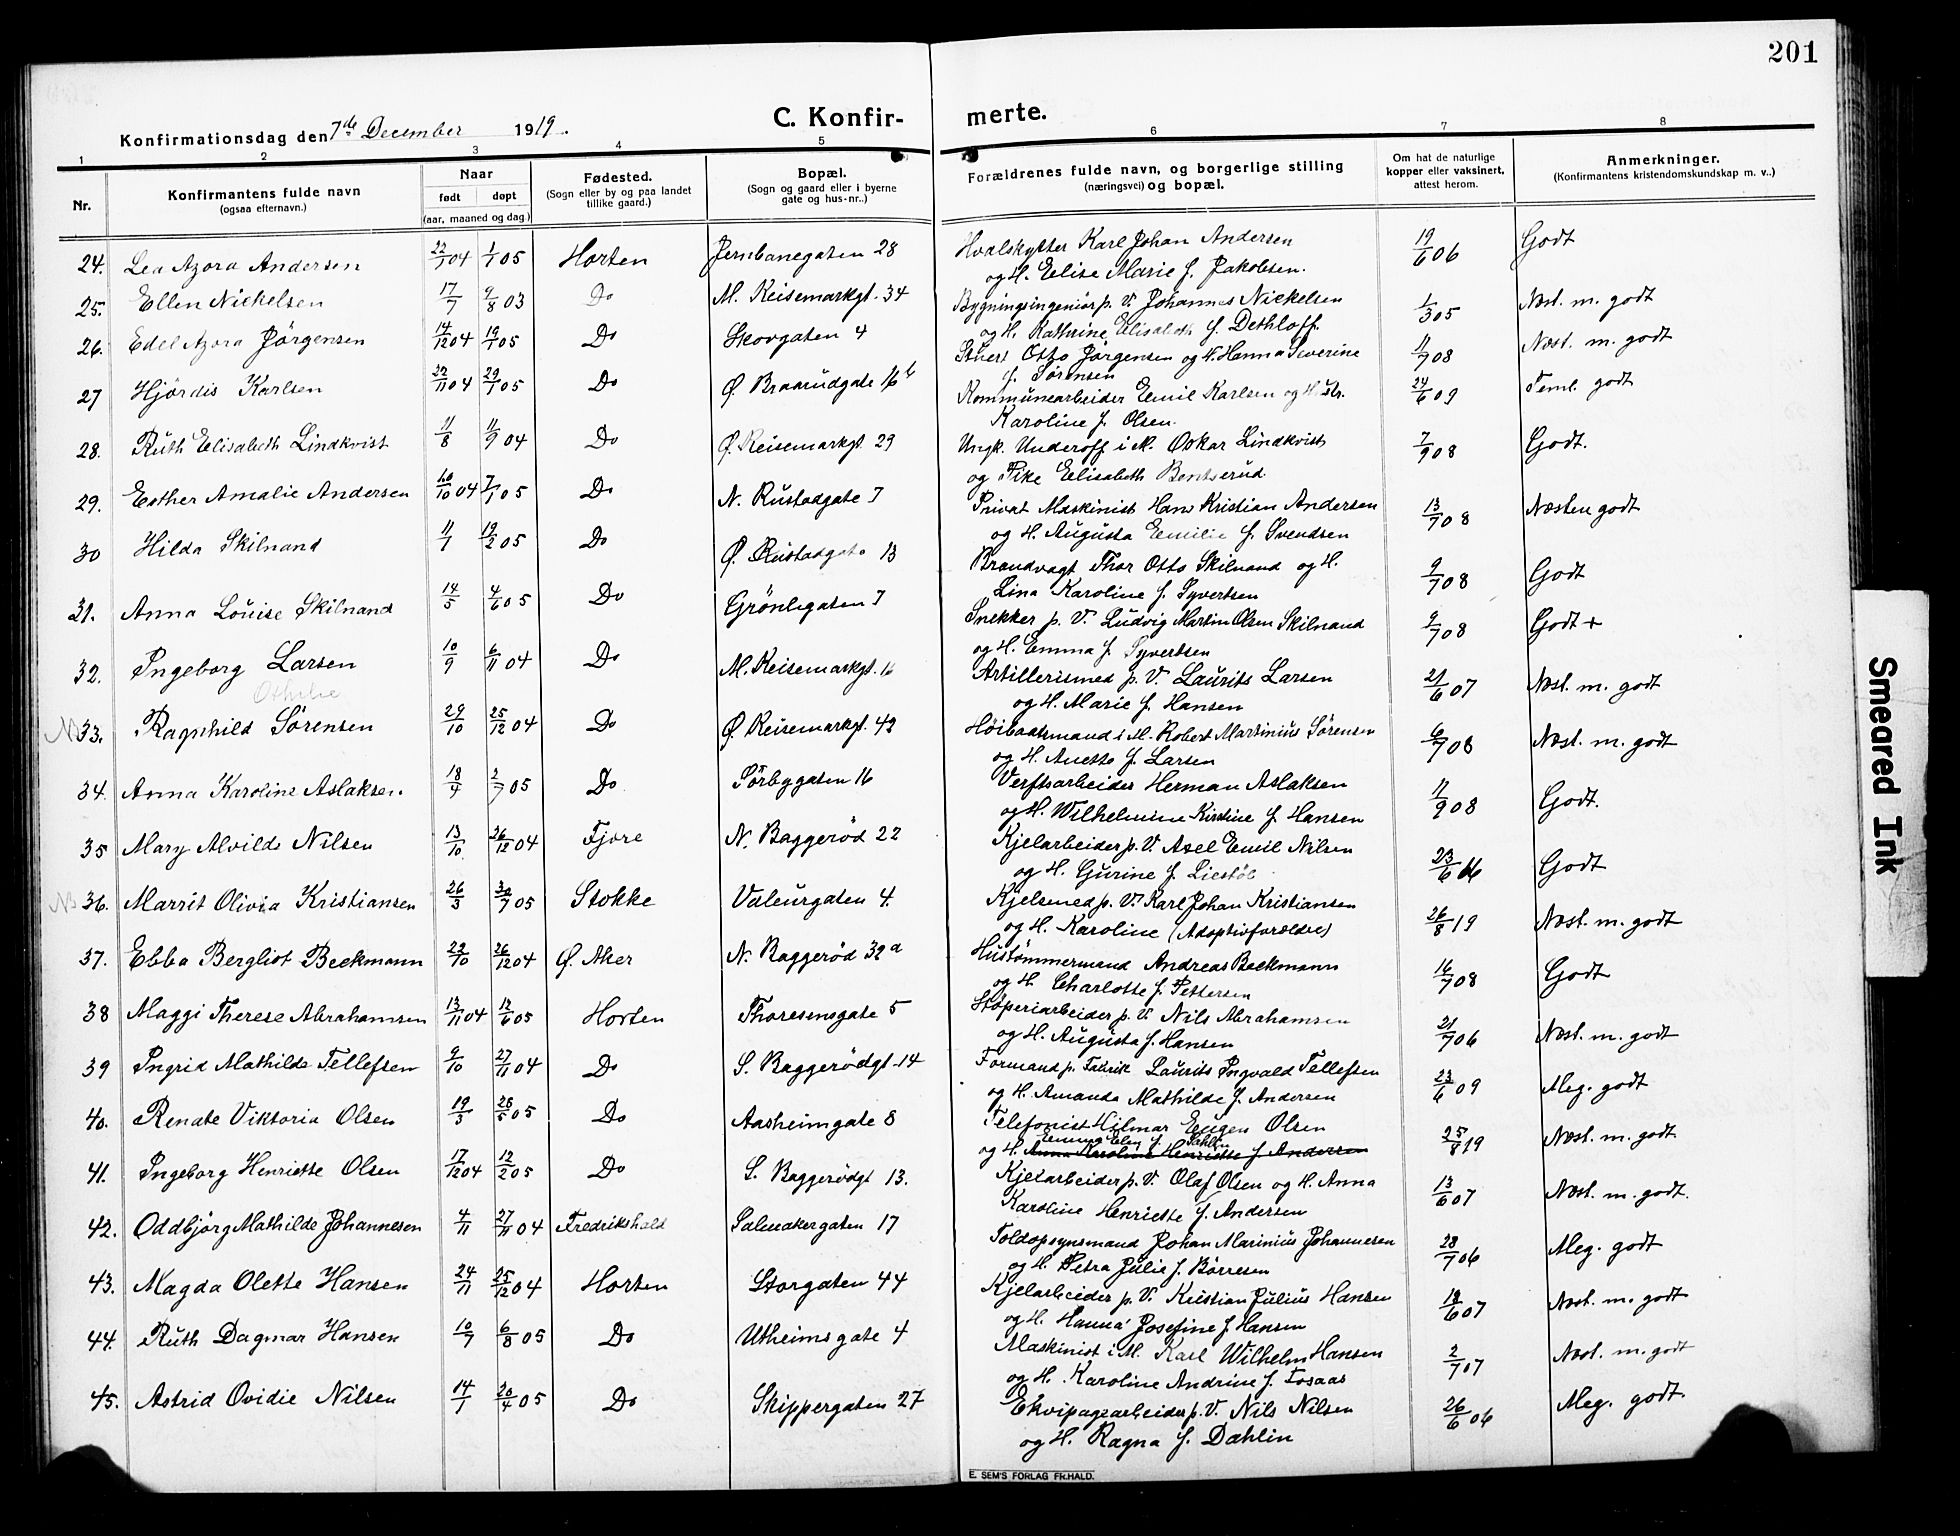 201
Konfirmationsdag den 7de December 1919.
C. Konfir- merte.
1 2 3 4 5 6 7 8
Nr.
Konfirmantens fulde navn
(ogsaa efternavn.)
Naar
født døpt
(aar, maaned og dag)
Fødested.
(Sogn eller by og paa landet
tillike gaard.)
Bopæl.
(Sogn og gaard eller i byerne
gate og hus-nr..)
Forældrenes fulde navn, og borgerlige stilling
(næringsvei) og bopæl.
Om hat de naturlige
kopper eller vaksinert,
attest herom.
Anmerkninger.
(Konfirmantens kristendomskundskap m. v..)
24. Lea Azora Andersen 22/1 04 1/1 05 Horten Jernbanegaten 28 Hvalskytter Karl Johan Andersen 19/6 06 Godt
og H. Elise Marie f. Jakobsen.
25. Ellen Nickelsen 17/7 9/8 03 Do M. Keisemarkgt. 34 Bygningsingeniør p. V. Johannes Nickelsen 1/3 05 Næst. m. godt
og H. Kathrine Elisabeth f. Dethloff.
26. Edel Azora Jörgensen 14/12 04 19/1 05 Do Skovgaten 4 Stuert Otto Jørgensen og H. Hanna Severine 11/7 08 Næst. m. godt
f. Sørensen
27 Hjördis Karlsen 22/11 04 29/1 05 Do Ø. Braarudgate 16b Kommunearbeider Emil Karlsen og Hustr. 24/6 09 Teml. godt
Karoline f. Olsen.
28. Ruth Elisabeth Lindkvist 11/8 11/9 04 Do Ø. Keisemarkgt 29 Ungk. Underoff i M. Oskar Lindkvist 7/9 08 Godt.
og Pike Elisabeth Bentserud
29. Esther Amalie Andersen 10/10 04 7/1 05 Do N. Rustadgate 7 Privat Maskinist Hans Kristian Andersen 13/7 08 Næsten godt
og H. Augusta Emilie f. Svendsen
30 Hilda Skilnand 11/1 19/2 05 Do Ø. Rustadgate 13 Brandvagt Thor Otto Skilnand og H. 9/7 08 Godt
Lina Karoline f. Syvertsen
31. Anna Louise Skilnand 14/5 4/6 05 Do Grönligaten 7 Snekker p. V. Ludvig Martin Olsen Skilnand 9/7 08 Godt +
og H. Emma f. Syvertsen
32. Ingeborg Larsen 10/9 6/11 04 Do M. Keisemarkgt. 16 Artillerismed p. V. Laurits Larsen 21/6 07 Næst. m. godt
og H. Marie f. Hansen
Othilie
33. Ragnhild Sörensen 29/10 25/12 04 Do Ø. Keisemarkgt. 42 Höibaatsmand i M. Robert Martinius Sörensen 6/7 08 Næst. m. godt
og H. Anette f. Larsen
34. Anna Karoline Aslaksen. 18/4 2/7 05 Do Sörbygaten 16 Verftsarbeider Herman Aslaksen 11/9 08 Godt.
og H. Wilhelmine Kirstine f. Hansen
35 Mary Alvilde Nilsen 13/10 26/12 04 Fjore N. Baggerød 22 Kjelarbeider p. V. Axel Emil Nilsen 23/6 16 Godt
og H. Gurine f. Liestöl
36. Marrit Olivia Kristiansen 26/3 30/7 05 Stokke Valeurgaten 4. Kjelsmed p. V. Karl Johan Kristiansen 26/8 19 Næst. m. godt
og H. Karoline (Adoptivforældre)
37. Ebba Bergliot Beckmann 22/10 26/12 04 Ø. Aker N. Baggerød 32a Hustömmermand Andreas Beckmann 16/7 08 Godt
og H. Charlotte f. Pettersen
38 Maggi Therese Abrahamsen 13/11 04 12/6 05 Horten Thoresensgate 5 Støperiarbeider p. V. Nils Abrahamsen 21/7 06 Næst. m. godt
og H. Augusta f. Hansen
39 Ingrid Mathilde Tellefsen 9/10 27/11 04 Do S. Baggerödgt. 14 Formand p. Fabrik Laurits Ingvald Tellefsen 23/6 09 Meg. godt
og H. Amanda Mathilde f. Andersen
40. Renate Viktoria Olsen 19/3 28/5 05 Do Aasheimgate 8 Telefonist Hilmar Eugen Olsen 25/8 19 Næst. m. godt
Emma Elen f. Dahlin
og H. Anna Karoline Henriette f. Andersen
41. Ingeborg Henriette Olsen 17/12 04 12/2 05 Do S. Baggerødgt 13. Kjelarbeider p. V. Olaf Olsen og H. Anna 13/6 07 Næst. m. godt.
Karoline Henriette f. Andersen
42. Oddbjörg Mathilde Johannesen 4/11 27/11 04 Fredrikshald Salmakergaten 17 Toldopsynsmand Johan Marinius Johannesen 28/7 06 Meg. godt
og H. Petra Julie f. Börresen
43. Magda Olette Hansen 24/11 25/12 04 Horten Storgaten 44 Kjelarbeider p. V. Kristian Julius Hansen 18/6 07 Næst. m. godt
og H. Hanna Josefine f. Hansen
44. Ruth Dagmar Hansen 10/7 6/8 05 Do Utheimsgate 4 Maskinist i M. Karl Wilhelm Hansen 2/7 07 Næst. m. godt
og H. Karoline Andrine f. Fosaas
45. Astrid Ovidie Nilsen 14/1 20/4 05 Do Skippergaten 27 Ekvipagearbeider p. V. Nils Nilsen 26/6 06 Meg. godt.
og H. Ragna f. Dahlin
E. SEM'S FORLAG FR.HALD.
Smeared Ink